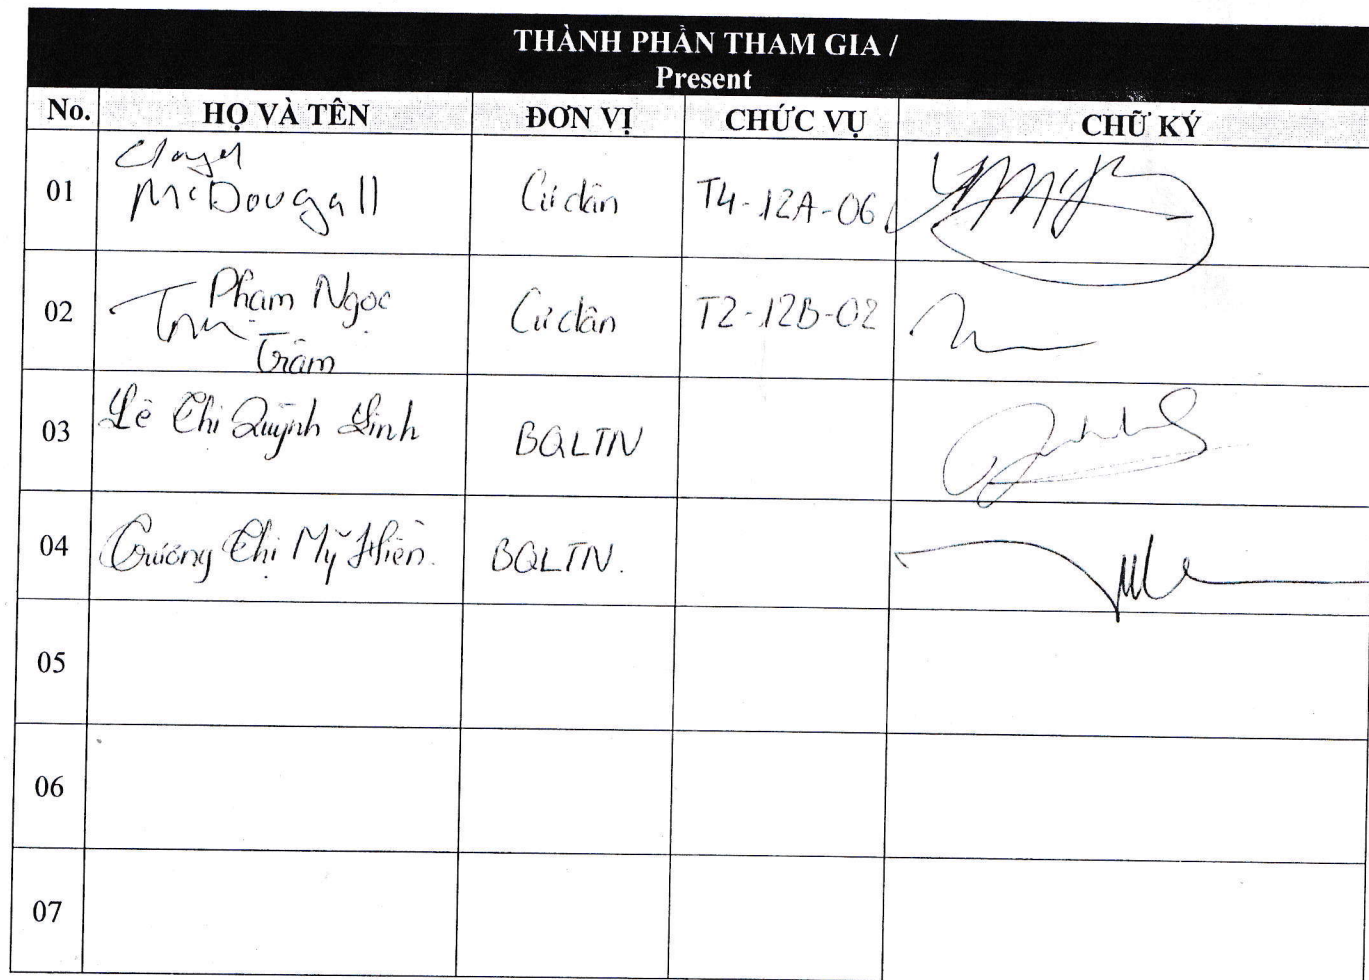 THÀNH PHẦN THAM GIA /
Present
No. HỌ VÀ TÊN ĐƠN VỊ CHỨC VỤ CHỮ KÝ
01 McDougall Cư dân T4-12A-06
02 Phạm Ngọc Trâm Cư dân T2-12B-02
03 Lê Thị Quỳnh Linh BQLTN
04 Trương Thị Mỹ Hiền. BQLTN.
05
06
07